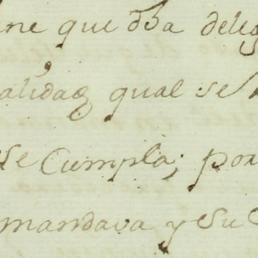 ne que dha deleg
alidad qual se
se Cumpla; por
mandava y Su